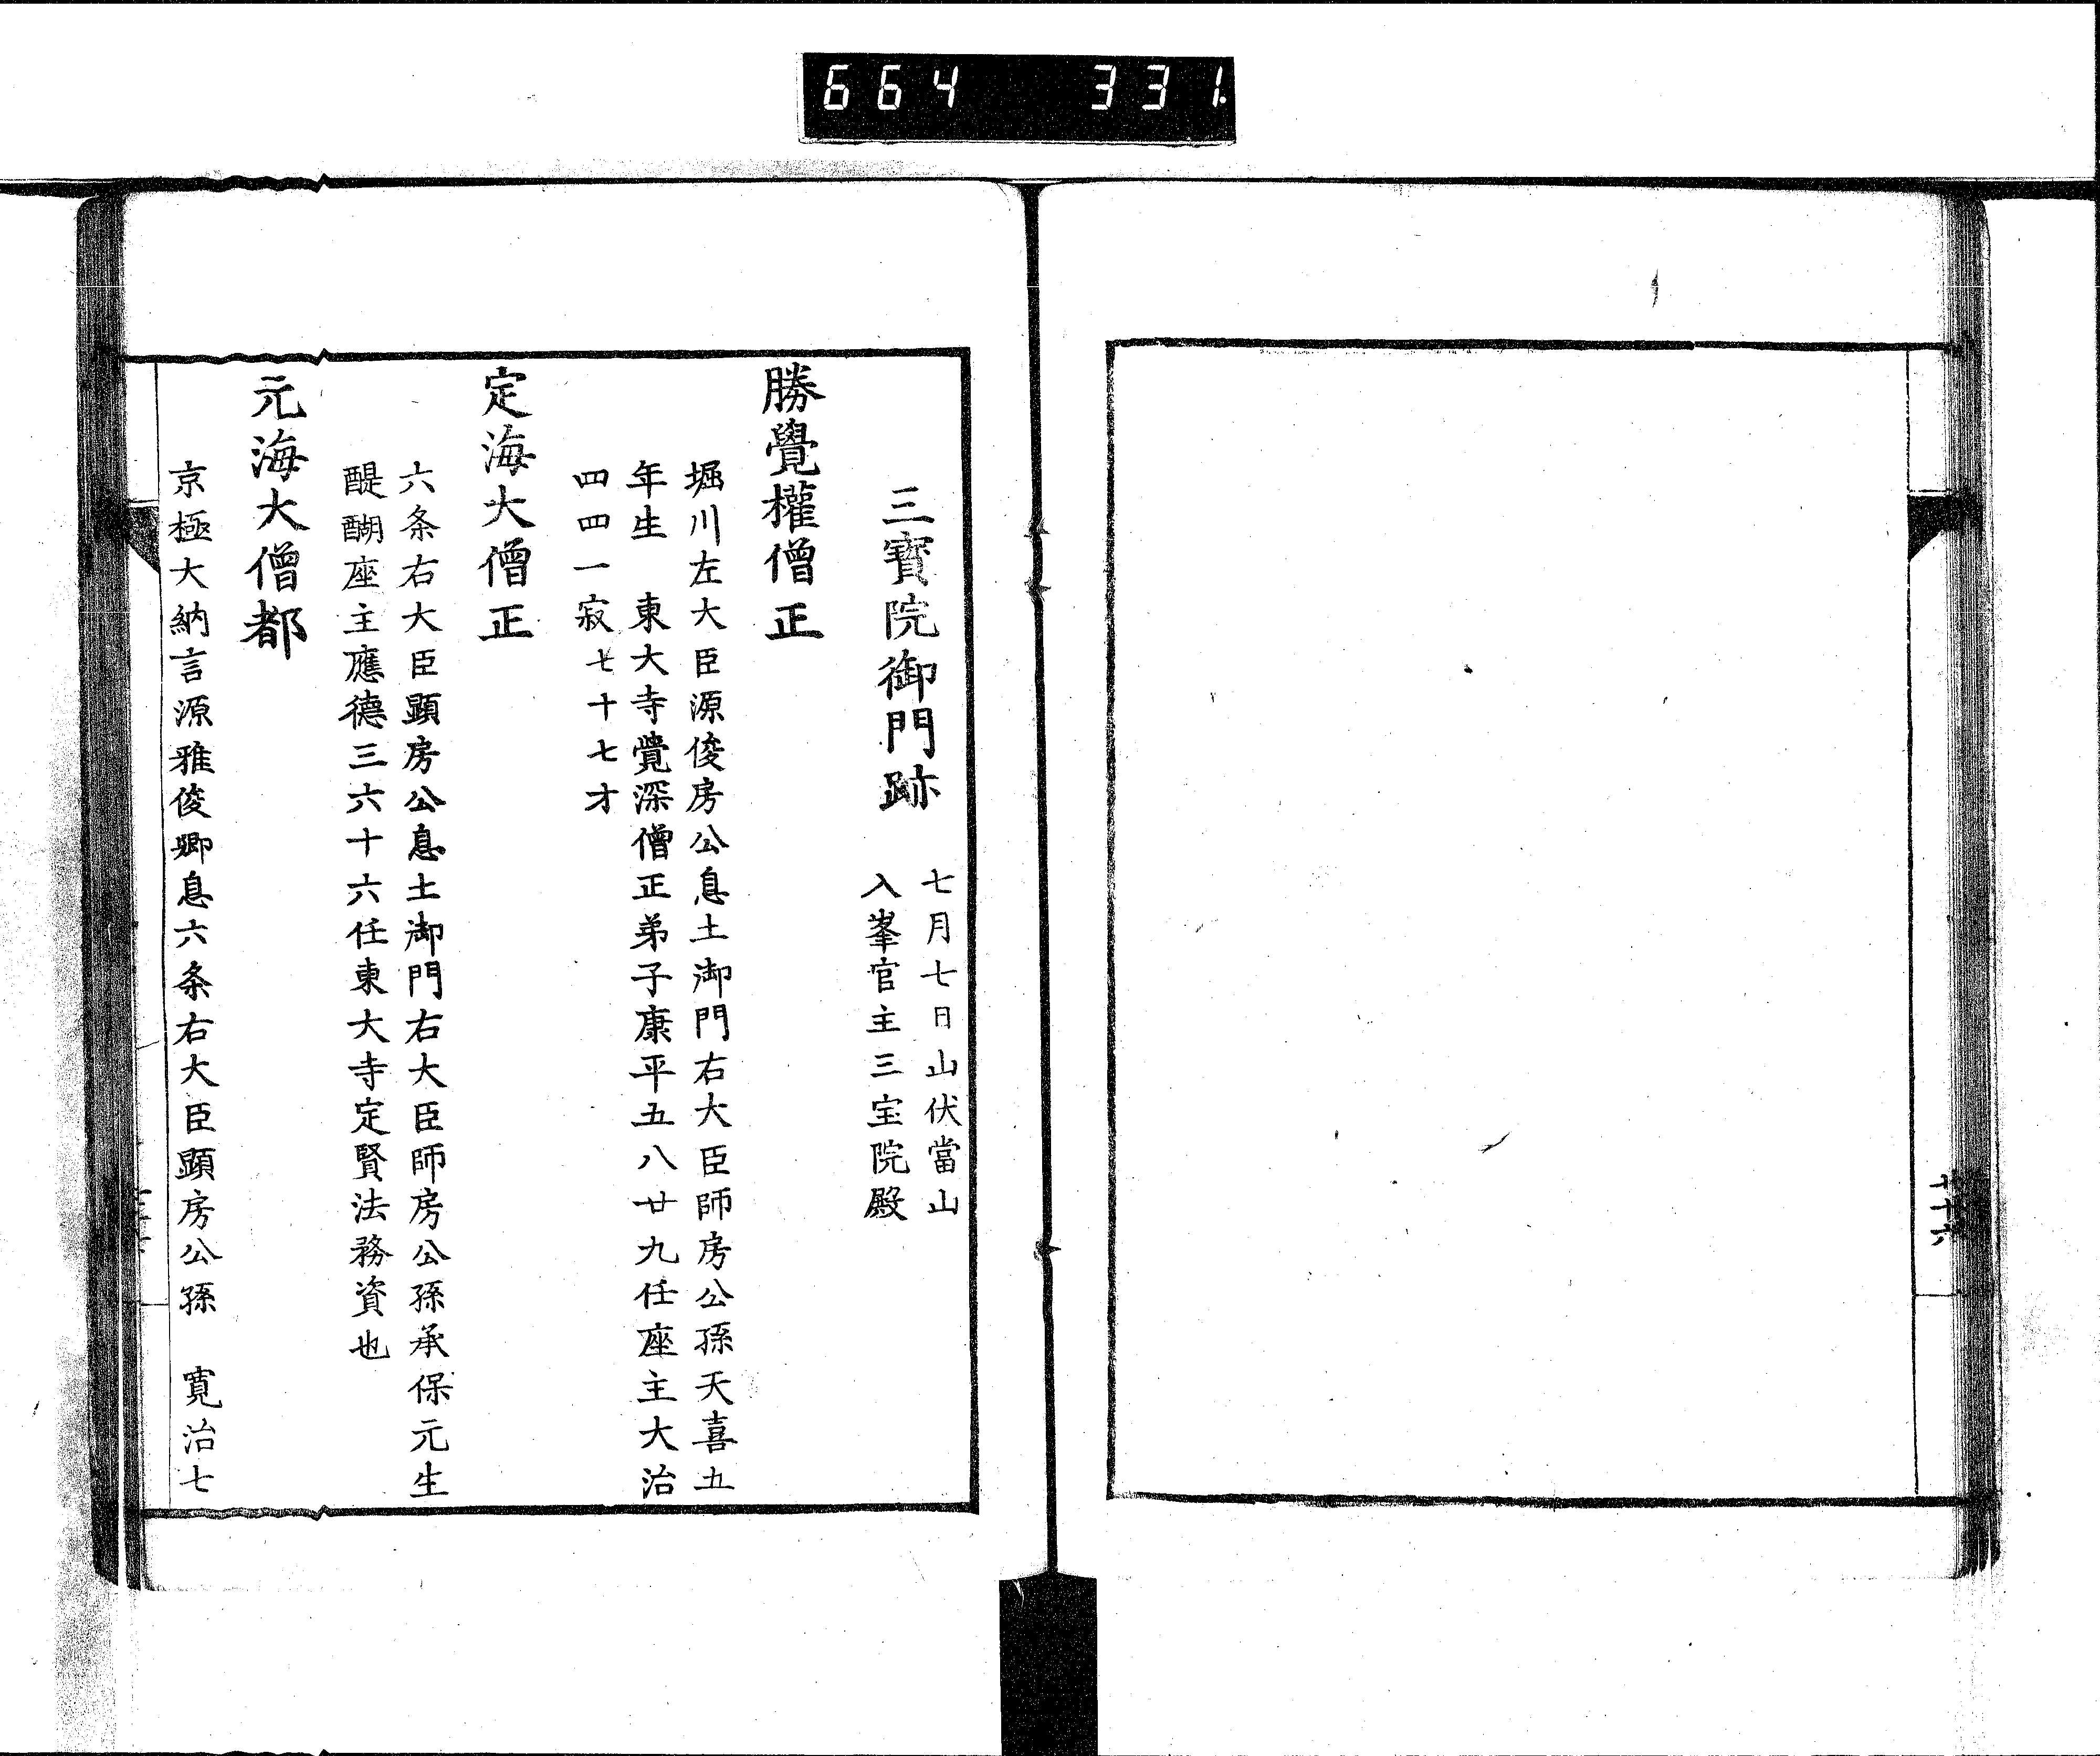 664 331
三寶院御門跡
七月七日山伏當山
入峯官主三宝院殿
勝覺權僧正
堀川左大臣源俊房公息土御門右大臣師房公孫天喜五
年生 東大寺覺深僧正弟子康平五八廿九任座主大治
四四一寂七十七才
定海大僧正
六条右大臣顕房公息土御門右大臣師房公孫承保元生
醍醐座主應德三六十六任東大寺定賢法務資也
元海大僧都
京極大納言源雅俊卿息六条右大臣顕房公孫 寛治七